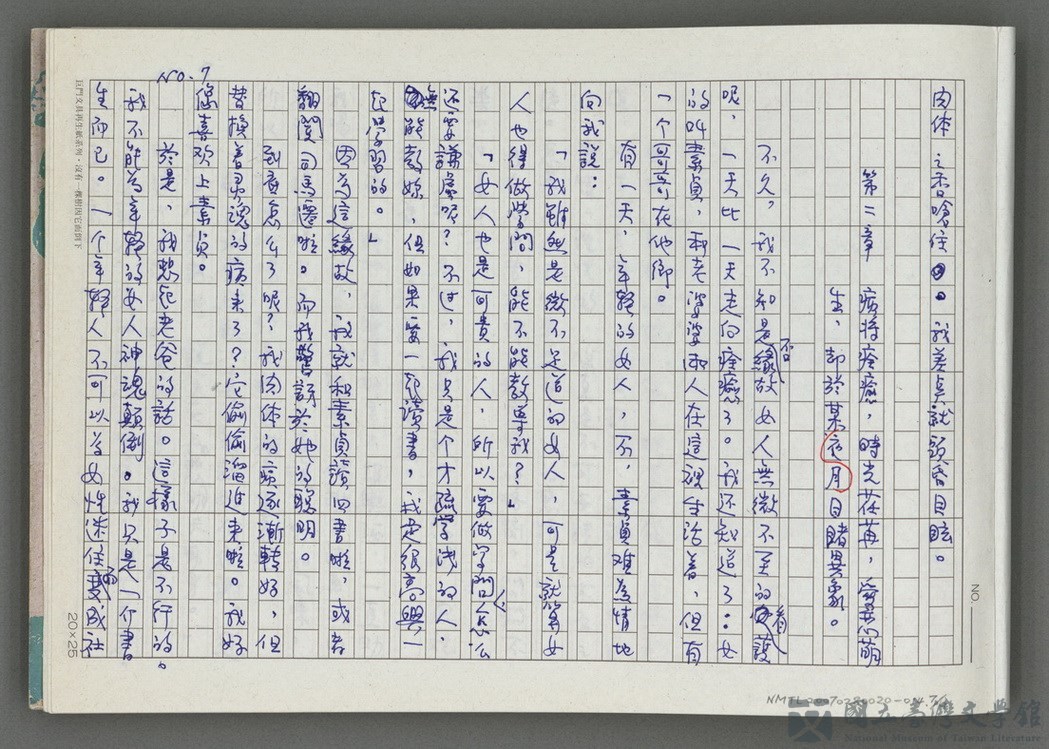 肉体之香嗆住。我差点就頭昏目眩。
第二章
疲将痊癒，時光荏苒，爱苗萌
生，却於某夜月目睹異象。
不久，我不知是否緣故女人無微不至的看護
呢，一天比一天走向痊癒了。我还知道了：女
的叫素貞，和老婆婆兩人在這裡生活着，但有
一个哥哥在他鄉。
有一天，年輕的女人，不，素貞难為情地
向我説：
「我雖然是微不足道的女人，可是就算女
人也得做学問，能不能教導我？」
「女人也是可貴的人，所以要做学問，怎么
还要謙虚呢？不过，我只是个才疏学浅的人，
無能教妳，但如果要一起讀書，我是很高興一
起学習的。」
因為這緣故，我就和素貞讀四書啦，或者
翻閱司馬遷啦。而我驚訝於她的聪明。
到底怎么了呢？我肉体的病逐漸轉好，但
替換着灵魂的病来了？它偷偷溜进来啦。我好
像喜欢上素貞。
於是，我想起老爸的話。這樣子是不行的。
我不能為年輕的女人神魂顛倒。我只是一介書
生而已。一个年輕人不可以為女性迷住而变成社
No. 7
巨門文具再生紙系列・沒有一棵樹因它而倒下
20×25
NO.
國立臺灣文學館
National Museum of Taiwan Literature